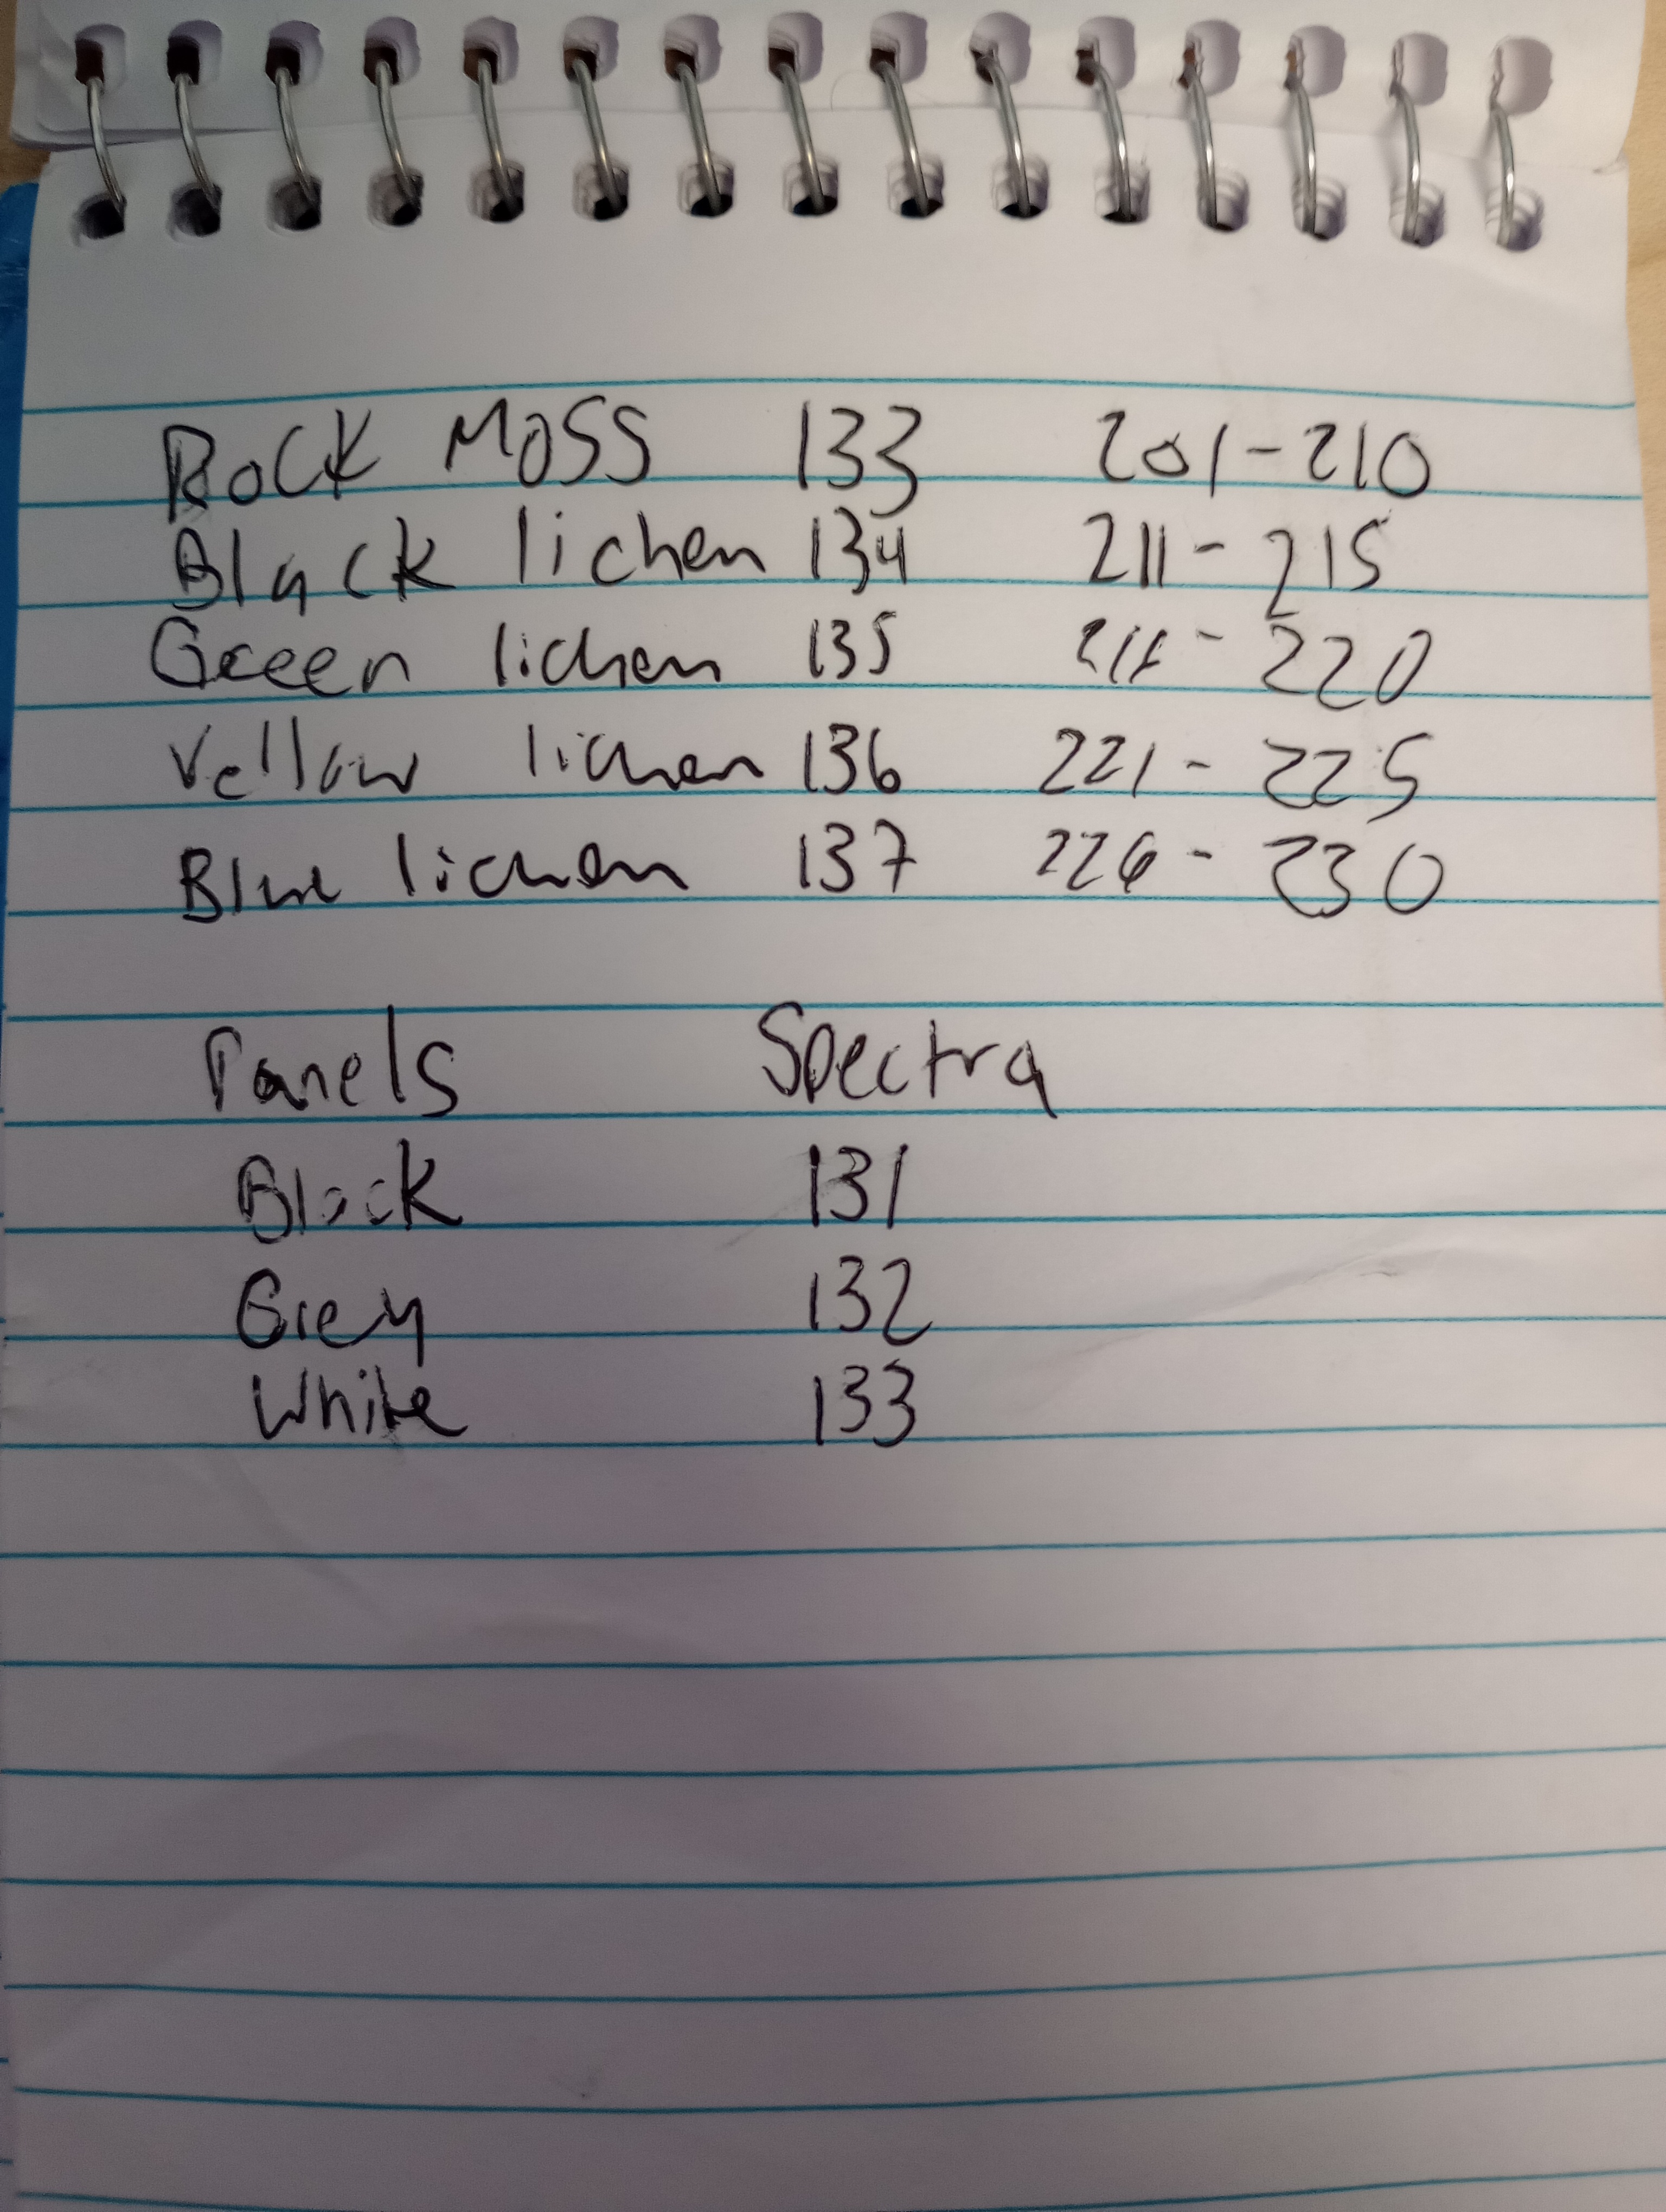 Rock Moss 133 201-210
Black lichen 134 211-215
Green lichen 135 216-220
Yellow lichen 136 221-225
Blue lichen 137 226-230
Panels Spectra
Black 131
Grey 132
White 133